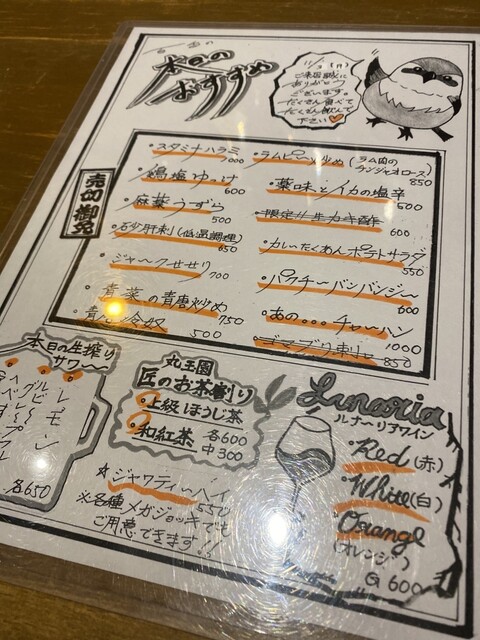 本日の
おすすめ
11/3 (月)
ご来店誠に
ありがとう
ございます。
たくさん食べて
たくさん飲んで
下さい♡
売切御免
・スタミナハラミ
・鶏塩ゆっけ
600
・麻薬うずら
500
・砂肝刺(低温調理)
650
・ジャークせせり
700
・青菜の青唐炒め
750
冷奴
500
・ラムピーマン炒め(ラム肉のチンジャオロース)
850
・薬味とイカの塩辛
500
・限定!!生カキ酢
600
・カレーたくあんポテトサラダ
550
・パクチーバンバンジー
600
・あの...チャーハン
1000
850
本日の生搾り
サワー
各650
丸玉園
匠のお茶割り
・上級ほうじ茶
・和紅茶 各600
中300
☆ジャワティーハイ
550
※各種メガジョッキでも
ご用意できます!!
Lunaria
ルナーリアワイン
・Red(赤)
・White(白)
・Orange
(オレンジ)
G 600